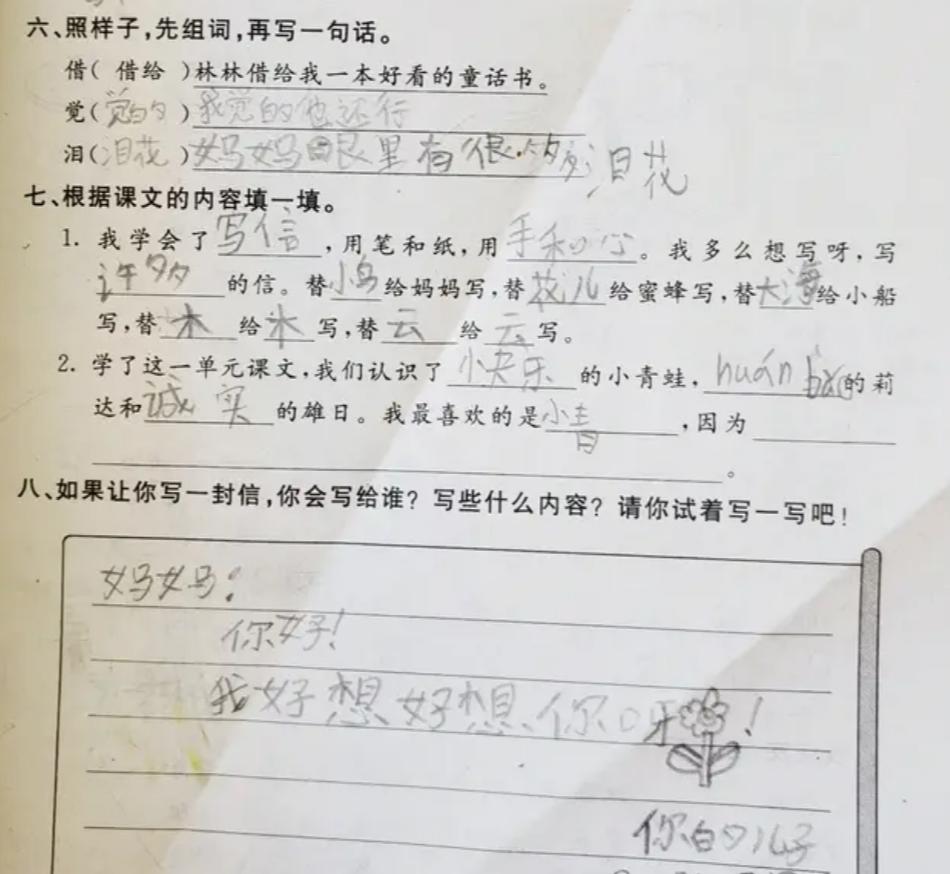 六、照样子,先组词,再写一句话。
借( 借给 )林林借给我一本好看的童话书。
觉(觉的)我觉的他还行
泪(泪花)妈妈眼里有很多泪花
七、根据课文的内容填一填。
1. 我学会了写信,用笔和纸,用手和心。我多么想写呀,写
许多的信。替小鸟给妈妈写,替花儿给蜜蜂写,替大海给小船
写,替木给米写,替云给云写。
2. 学了这一单元课文,我们认识了快乐的小青蛙,huán的莉
达和诚实的雄日。我最喜欢的是小青,因为
。
八、如果让你写一封信,你会写给谁?写些什么内容?请你试着写一写吧!
妈妈:
你好!
我好想好想你呀!
你的儿子